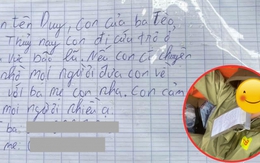 tên Duy, con của ba đẹo,
Thủy này con đi cứu trợ ở
vé bão lũ. Nếu con có chuyện
nhờ mọi người đưa con về
với ba mẹ con nha. Con cảm
mọi người nhiều ạ
ba.